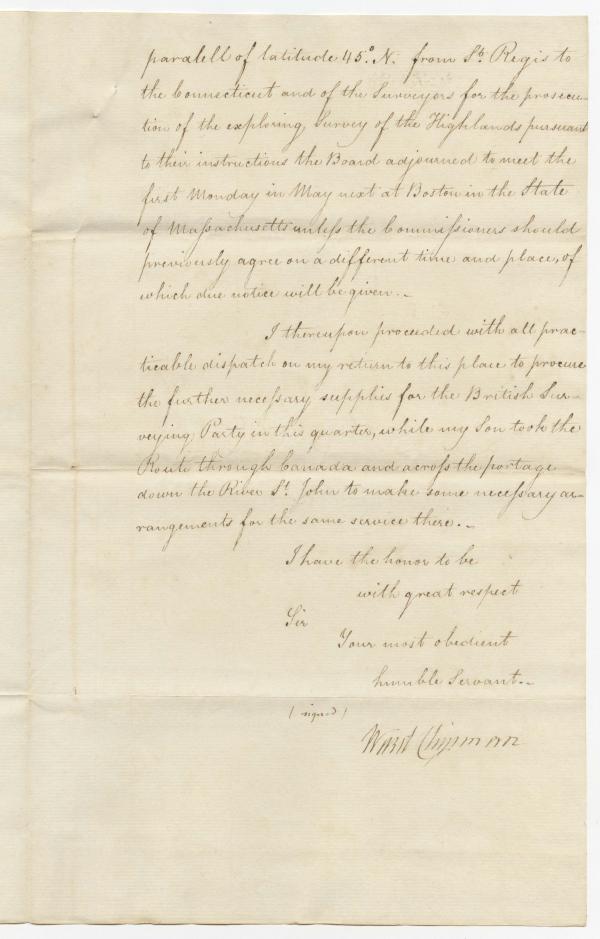 paralell of latitude 45°. N. from St. Regis to
the Connecticut and of the Surveyors for the prosecu-
tion of the exploring Survey of the Highlands pursuant
to their instructions the Board adjourned to meet the
first Monday in May next at Boston in the State
of Massachusetts unless the Commissioners should
previously agree on a different time and place, of
which due notice will be given.-
I thereupon proceeded with all prac-
ticable dispatch on my return to this place to procure
the further necessary supplies for the British Sur-
veying Party in this quarter, while my Son took the
Route through Canada and across the portage
down the River St. John to make some necessary ar-
rangements for the same service there.-
I have the honor to be
with great respect
Sir
Your most obedient
humble Servant.-
(signed)
Ward Chipman